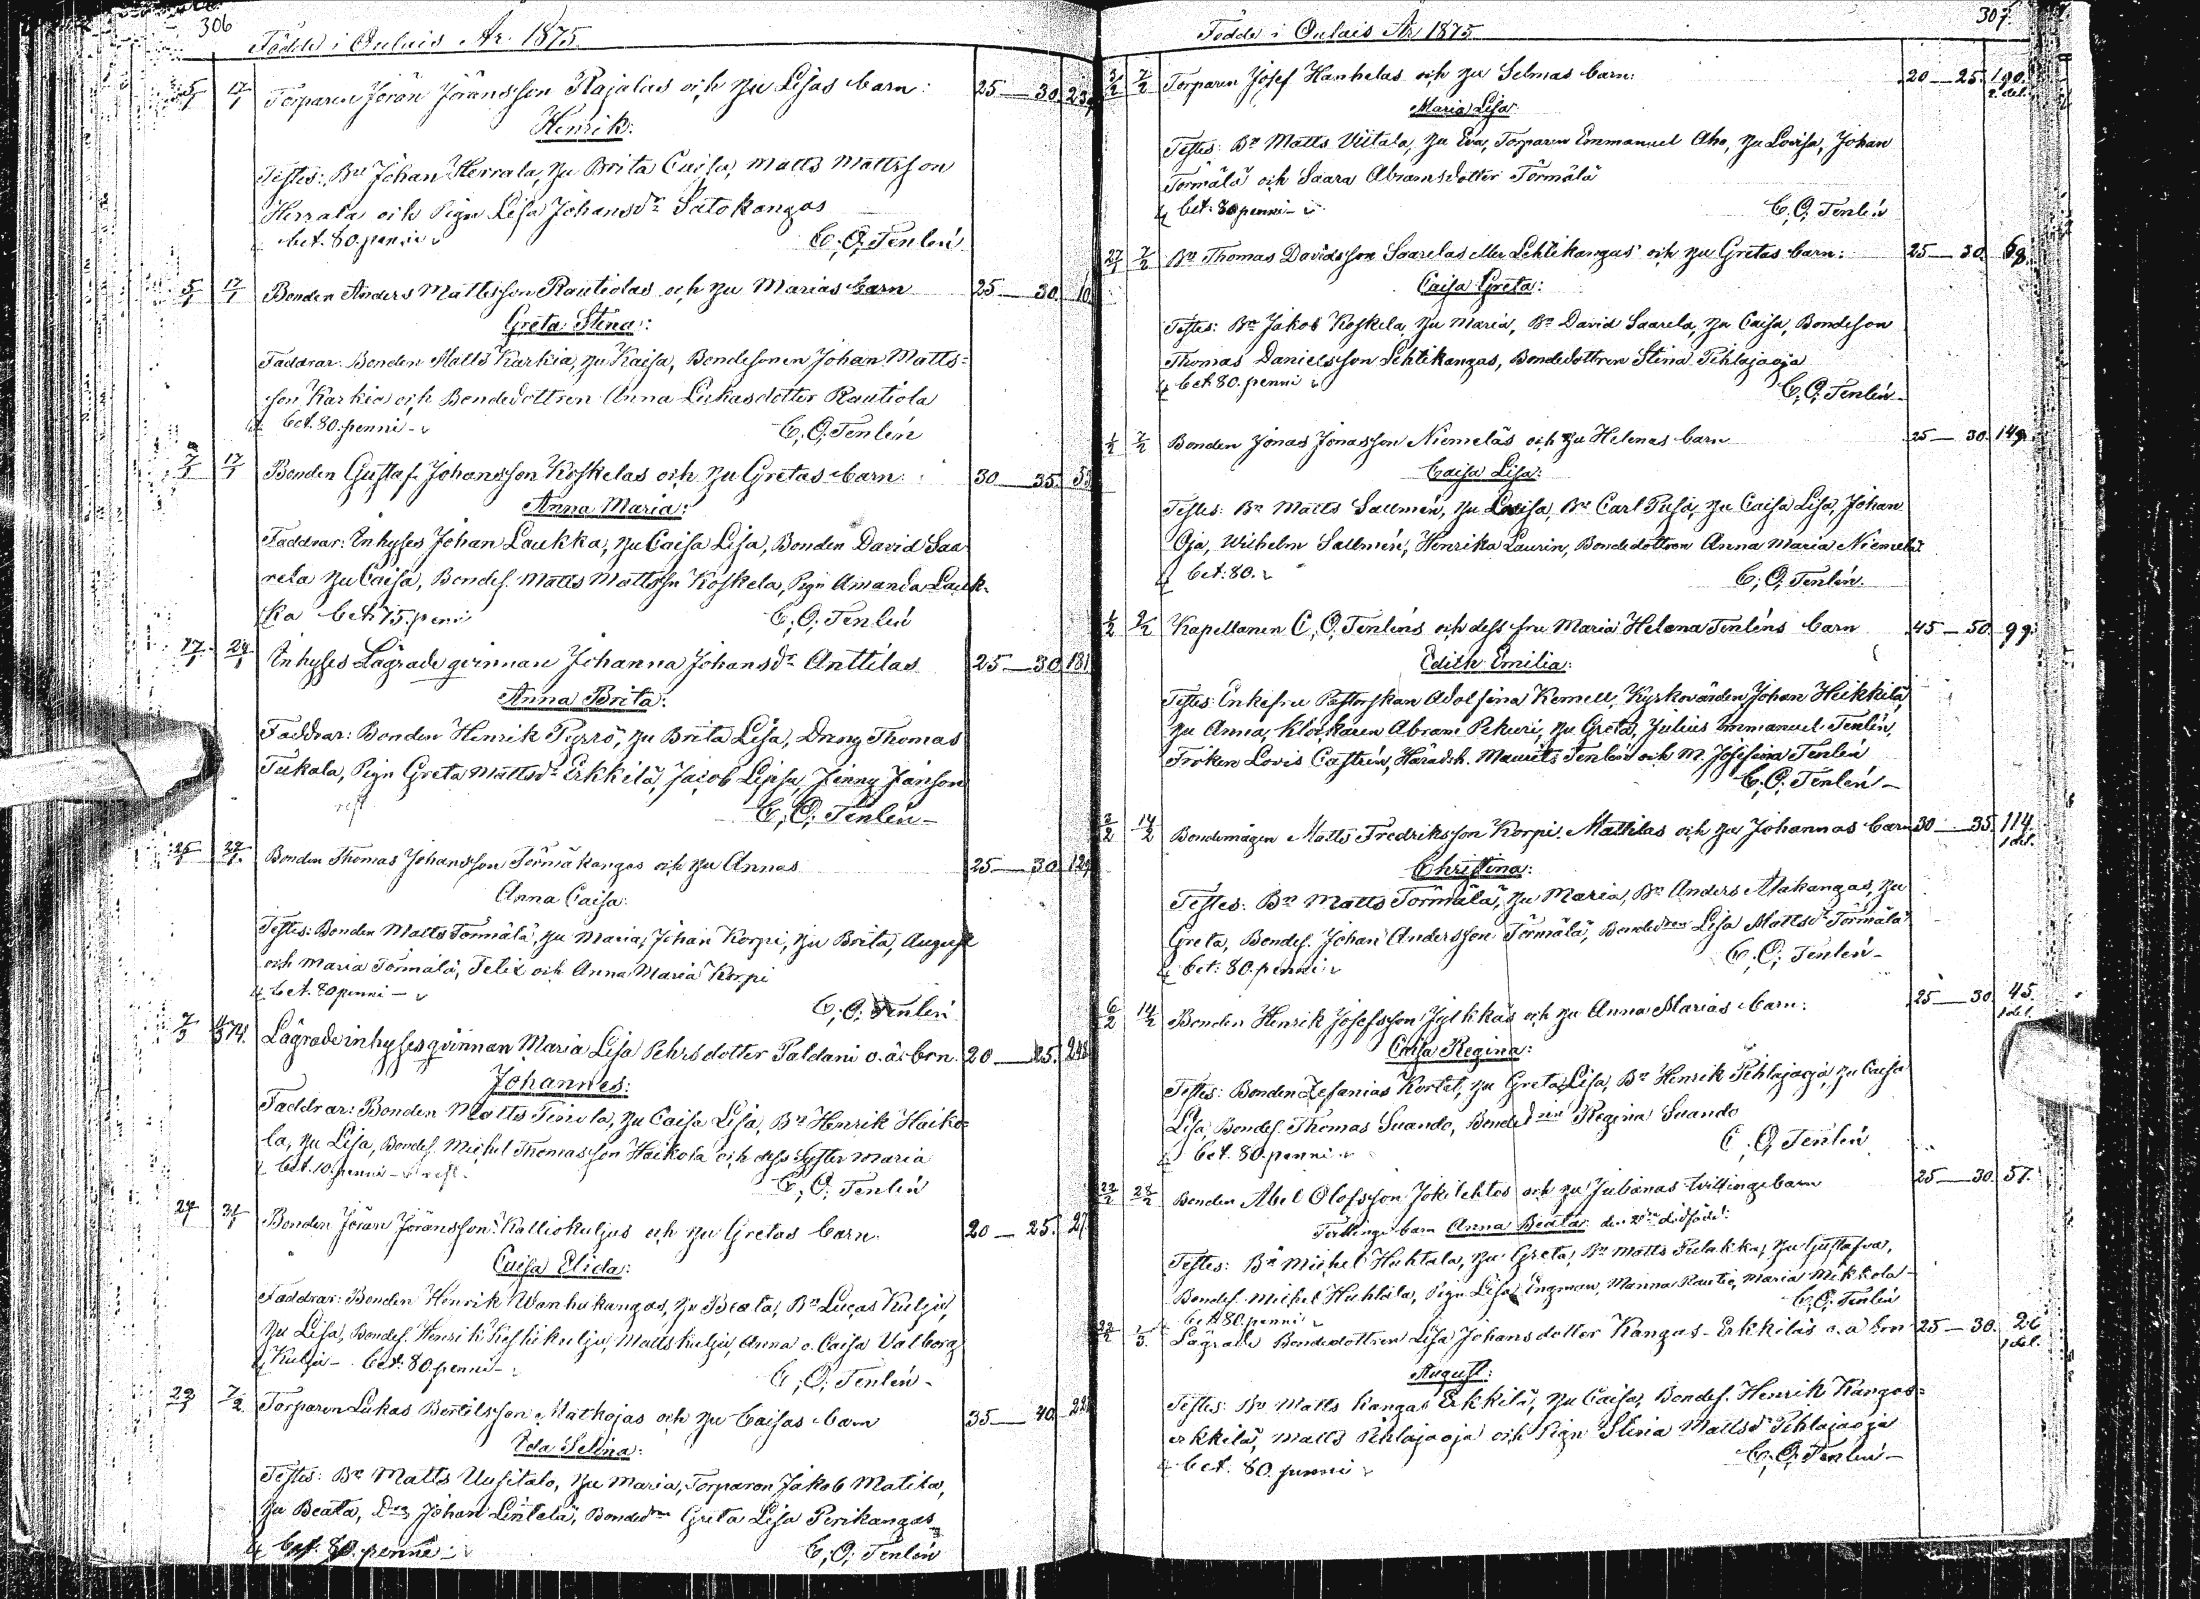 306
Födde i Oulais År 1875.
5/1 17/1 Torparen Jöran Jöransson Rajalas och hu Lisas barn: 25—30. 23
Henrik:
Testes: Bn Johan Herrala, hu Brita Caisa, Matts Mattsson
Herrala och Pign Lisa Johansdr Satokangas
bet. 80. penni
C. O. Tenlén
5/1 17/1 Bonden Anders Mattsson Rautiolas och hu Marias barn 25—30. 10
Greta Stina:
Faddrar: Bonden Matts Karkia, hu Kaisa, Bondesonen Johan Matts-
son Karkia och Bondedottren Anna Lukasdotter Rautiola
bet. 80. penni
C. O. Tenlén
7/1 17/1 Bonden Gustaf Johansson Koskelas och hu Gretas barn: 30—35.
Anna Maria:
Faddrar: Inhyses Johan Laukka, hu Caisa Lisa, Bonden David Saa-
rela hu Caisa, Bondes. Matts Mattssn Koskela, Pign Amanda Lauk-
ka bet. 75. peni
C. O. Tenlén
17/1 24/1 Inhyses Lägrade qvinnan Johanna Johansdr Anttilas 25—30. 181
Anna Brita:
Faddrar: Bonden Henrik Pyrrö, hu Brita Lisa, Dräng Thomas
Tukala, Pign Greta Mattsdr Erkkilä, Jacob Lipsu, Jenny Janson
rest
C. O. Tenlén
Bonden Thomas Johansson Törmäkangas och hu Annas 25—30.
Anna Caisa:
Testes: Bonden Matts Törmälä, hu Maria, Johan Korpi, hu Brita, August
och Maria Törmälä, Felix och Anna Maria Korpi
bet. 80 penni
C. O. Tenlén
Lägrade inhysesqvinnan Maria Lisa Pehrsdotter Paldani o. ä. brn. 20—25.
Johannes:
Faddrar: Bonden Matts Tinola, hu Caisa Lisa, Bn Henrik Haiko-
la, hu Lisa, Bondes. Michel Thomasson Haikola och dess Syster Maria
bet. 10. penni rest.
C. O. Tenlén
Bonden Jöran Jöransson Kalliokuljus och hu Gretas barn. 20—25. 27
Caisa Elida:
Faddrar: Bonden Henrik Wanhakangas, hu Beata, Bn Lucas Kulju,
hu Lisa, Bondes. Henrik Keskikulju, Matts Kulju, Anna o. Caisa Valborg
Kulju bet. 80. penni
C. O. Tenlén
7/2 Torparen Lukas Bertilsson Matkojas och hu Caisas barn 35—40.
Ida Selina:
Testes: Bn Matts Uusitalo, hu Maria, Torparen Jakob Matila,
hu Beata, Drg Johan Lintala, Bonded. Greta Lisa Perikangas
bet. 80. penni
C. O. Tenlén
307.
Födde i Oulais År 1875
7/2 Torparen Josef Hanhelas och hu Selmas barn: 20—25. 190.
2. del.
Maria Lisa:
Testes: Bn Matts Viitala, hu Eva, Torparen Emmanuel Aho, hu Lovisa, Johan
Törmälä och Saara Abramsdotter Törmälä
bet: 80 penni
C. O. Tenlén
27/1 7/2 Bn Thomas Davidsson Saarelas eller Lehtikangas och hu Gretas barn: 25—30. 68.
Caisa Greta:
Testes: Bn Jakob Koskela, hu Maria, Bn David Saarela, hu Caisa, Bondeson
Thomas Danielsson Lehtikangas, Bondedottren Stina Pihlajaoja
bet. 80. penni
C. O. Tenlén
1/2 7/2 Bonden Jonas Jonasson Niemeläs och hu Helenas barn 25—30. 149.
Caisa Lisa:
Testes: Bn Matts Sallmén, hu Lovisa, Bn Carl Pusa, hu Caisa Lisa, Johan
Oja, Wilhelm Sallmén, Henrika Laurin, Bondedottren Anna Maria Niemelä
bet: 80.
C. O. Tenlén.
1/2 9/2 Kapellanen C. O. Tenléns och dess fru Maria Helena Tenléns barn 45—50. 99.
Edith Emilia:
Testes: Enkefru Pastorskan Adolfina Kemell, Kyrkovärden Johan Heikkilä,
hu Anna, Klockaren Abram Pekuri, hu Greta, Julius Emmanuel Tenlén,
Fröken Lovis Castrén, Häradsh. Maurits Tenlén och M. Josefina Tenlén
C. O. Tenlén
3/2 14/2 Bondemågen Matts Fredriksson Korpi-Mattilas och hu Johannas barn 30—35. 114
1 del.
Christina:
Testes: Bn Matts Törmälä, hu Maria, Bn Anders Alakangas, hu
Greta, Bondes. Johan Andersson Törmälä, Bondedtren Lisa Mattsdr Törmälä
bet: 80. penni
C. O. Tenlén
6/2 14/2 Bonden Henrik Josefsson Jylkkäs och hu Anna Marias barn: 25—30. 45.
1 del.
Caisa Regina:
Testes: Bonden Zefanias Kortet, hu Greta Lisa, Bn Henrik Pihlajaoja, hu Caisa
Lisa, Bondes. Thomas Suando, Bondedtren Regina Suando
bet. 80. penni
C. O. Tenlén
22/2 28/2 Bonden Abel Olofsson Jokilehtos och hu Julianas tvillingebarn 25—30. 57.
Tvillinge barn Anna Beata: den 2dra dödfödd:
Testes: Bn Michel Huhtala, hu Greta, Bn Matts Pulakka, hu Gustafva,
Bondes. Michel Huhtala, Pign Lisa Engman, Manna Rautio, Maria Mikkola
bet. 80. penni
C. O. Tenlén
Lägrade Bondedottren Lisa Johansdotter Kangas-Erkkiläs o. ä. brn 25—30. 26
1 del.
August:
Testes: Bn Matts Kangas Erkkilä, hu Caisa, Bondes. Henrik Kangas-
erkkilä, Matts Pihlajaoja och Pign Stina Mattsdr Pihlajaoja
bet. 80. penni
C. O. Tenlén